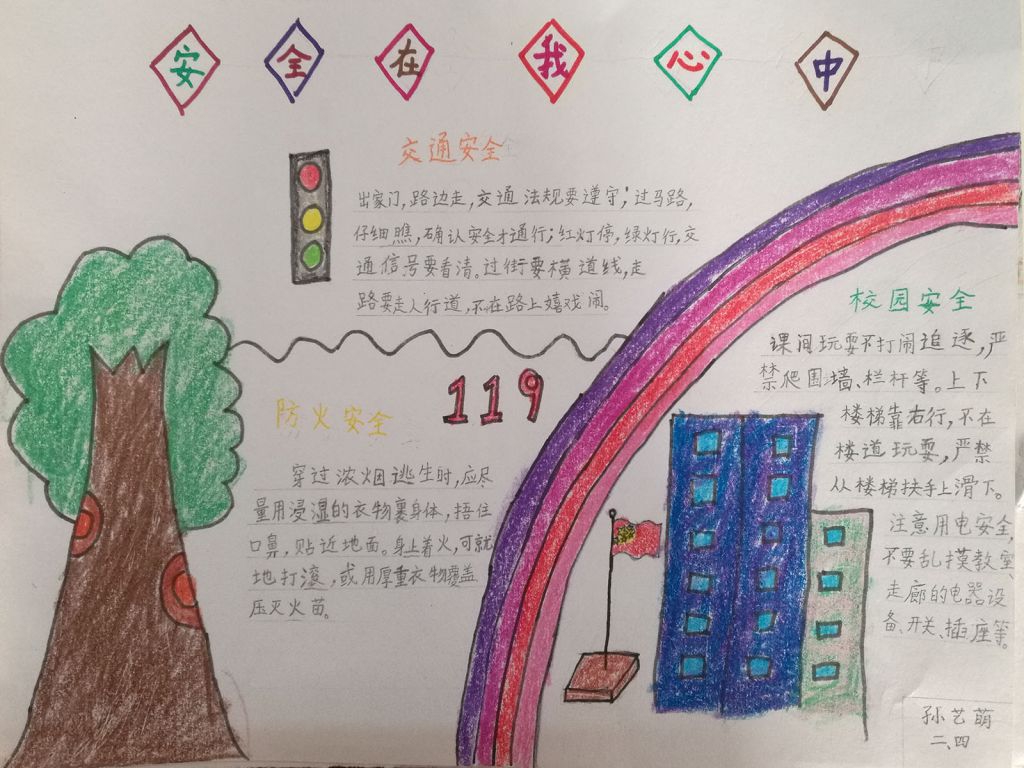 安全在我心中
交通安全
出家门,路边走,交通法规要遵守;过马路,
仔细瞧,确认安全才通行;红灯停,绿灯行,交
通信号要看清。过街要横道线,走
路要走人行道,不在路上嬉戏闹。
119
防火安全
穿过浓烟逃生时,应尽
量用浸湿的衣物裹身体,捂住
口鼻,贴近地面。身上着火,可就
地打滚,或用厚重衣物覆盖
压灭火苗。
校园安全
课间玩耍不打闹追逐,严
禁爬围墙、栏杆等。上下
楼梯靠右行,不在
楼道玩耍,严禁
从楼梯扶手上滑下。
注意用电安全,
不要乱摸教室
走廊的电器设
备、开关、插座等。
孙艺萌
二、四